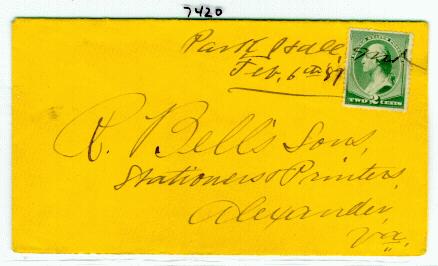 7420
Park Gate,
Feb. 6th 89
TWO 2 CENTS
R. Bell's Sons,
Stationers & Printers,
Alexander,
Va.